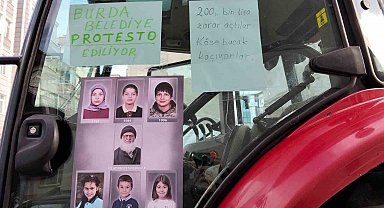 BURDA
BELEDİYE
PROTESTO
EDİLİYOR
200. bin lira
zarar açtılar
Köse bucak
kaçıyorlar.